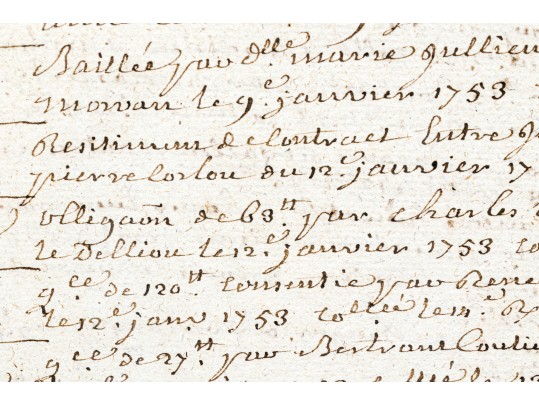 Baillée par dlle marie Jullien
morvan le 9e janvier 1753
Resiliment de Contract Entre
pierre Corlou du 12e janvier 17
obligaõn de 63tt par charles
le Delliou le 12e janvier 1753 co
qce de 120tt Consentie par Rene
le 12e janr 1753 collée le
qce de 27tt par Bertrant